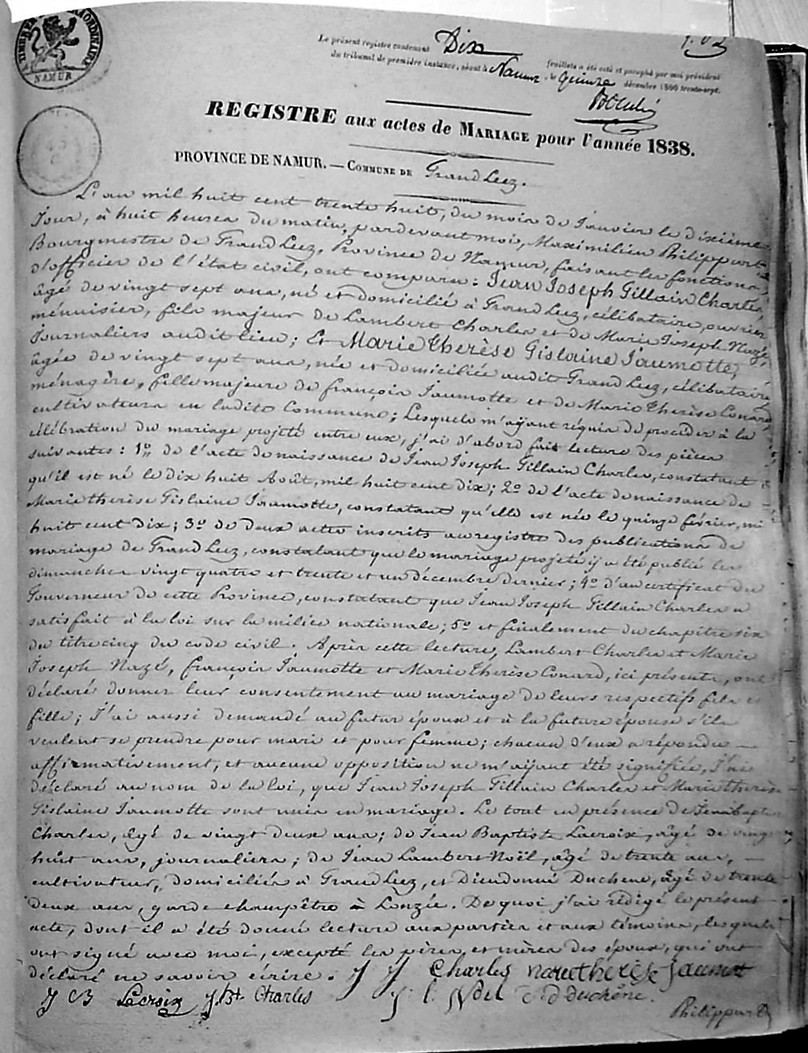 TIMBRE EXTRAORDINAIRE
NAMUR
Le présent registre contenant Dix feuillets a été coté et paraphé par moi président
du tribunal de première instance, séant à Namur, le quinze décembre 1800 trente-sept.
REGISTRE aux actes de MARIAGE pour l'année 1838.
PROVINCE DE NAMUR. — COMMUNE DE Grand Leez.
L'an mil huit cent trente huit, du mois de Janvier le dixième
Jour, à huit heures du matin, pardevant moi, Maximilien Philippart
Bourgmestre de Grand Leez, Province de Namur, faisant les fonctions
d'officier de l'état civil, ont comparu : Jean Joseph Gillain Charles,
âgé de vingt sept ans, né et domicilié à Grand Leez, célibataire, ouvrier
ménuisier, fils majeur de Lambert Charles et de Marie Joseph Nazé,
Journaliers audit lieu ; Et Marie Therèse Gislaine Jaumotte,
âgée de vingt sept ans, née et domiciliée audit Grand Leez, célibataire
ménagère, fille majeure de françois Jaumotte et de Marie Therèse Conard
cultivateurs en ladite Commune ; Lesquels m'ayant requis de procéder à la
célébration du mariage projeté entre eux, j'ai d'abord fait lecture des pièces
suivantes : 1º de l'acte de naissance de Jean Joseph Gillain Charles, constatant
qu'il est né le dix huit Août, mil huit cent dix ; 2º de l'acte de naissance de
Marie therèse Gislaine Jaumotte, constatant qu'elle est née le quinze février, mil
huit cent dix ; 3º de deux actes inscrits au registre des publications de
mariage de Grand Leez, constatant que le mariage projeté y a été publié les
dimanches vingt quatre et trente et un décembre dernier ; 4º d'un certificat du
Gouverneur de cette Province, constatant que Jean Joseph Gillain Charles a
satisfait à la loi sur la milice nationale ; 5º et finalement du chapitre six
du titre cinq du code civil. Après cette lecture, Lambert Charles et Marie
Joseph Nazé, françois Jaumotte et Marie Therèse Conard, ici présents, ont
déclaré donner leur consentement au mariage de leurs respectifs fils et
fille ; J'ai aussi demandé au futur époux et à la future épouse s'ils
veulent se prendre pour mari et pour femme ; chacun d'eux a répondu —
affirmativement, et aucune opposition ne m'ayant été signifiée, J'ai
déclaré au nom de la loi, que Jean Joseph Gillain Charles et Marie therèse
Gislaine Jaumotte sont unis en mariage. Le tout en présence de Jean baptiste
Charles, âgé de vingt deux ans ; de Jean Baptiste Lacroix, âgé de vingt
huit ans, journaliers ; de Jean Lambert Noël, âgé de trente ans, —
cultivateur, domiciliés à Grand Leez, et Dieudonné Duchene, âgé de trente
deux ans, garde champêtre à Lonzée. De quoi j'ai rédigé le présent
acte, dont il a été donné lecture aux parties et aux témoins, lesquels
ont signé avec moi, excepté les pères et mères des époux, qui ont
déclaré ne savoir écrire. J J Charles marietherèse Jaumot
J B Lacroix J Bt Charles J l Noel d d duchêne.
Philippart